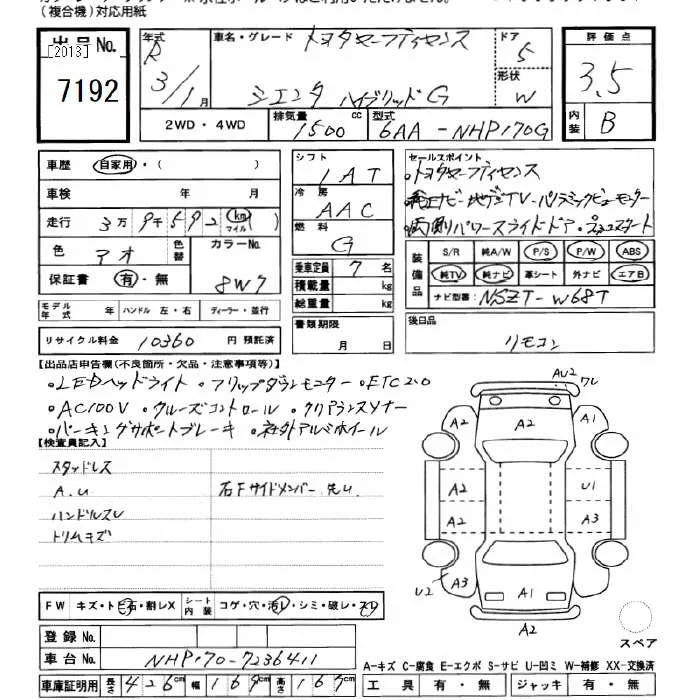 (複合機)対応用紙
出品No.
[2013]
7192
年式 R 3/1月
車名・グレード トヨタセーフティセンス
シエンタ ハイブリッドG
ドア 5
形状 W
評価点 3.5
内装 B
2WD・4WD
排気量 1500 cc
型式 6AA-NHP170G
車歴 自家用・( )
車検 年 月
走行 3万9千592 (km) マイル
色 アオ 色替 カラーNo. 8W7
保証書 有・無
シフト 1AT
冷房 AAC
燃料 G
乗車定員 7名
積載量 kg
総重量 kg
セールスポイント
・トヨタセーフティセンス
・純正ナビ・地デジTV・パノラミックビューモニター
・両側パワースライドドア・プッシュスタート
装備品
S/R 純A/W P/S P/W ABS
純TV 純ナビ 革シート 外ナビ エアB
ナビ型番: NSZT-W68T
モデル年式 年 ハンドル 左・右 ディーラー・並行
リサイクル料金 10360 円 預託済
書類期限 月 日
後日品 リモコン
【出品店申告欄(不良箇所・欠品・注意事項等)】
・LEDヘッドライト ・フリップダウンモニター ・ETC2.0
・AC100V ・クルーズコントロール ・クリアランスソナー
・パーキングサポートブレーキ ・社外アルミホイール
【検査員記入】
スタッドレス
A.U
ハンドルスレ
トリムキズ
右Fサイドメンバー先U
AU2
フレ
A2
A2 A1
A2
A2 U1
A2 A3
U2 A3 A1
A2
スペア
FW キズ・トビ石・割レX
シート内装 コゲ・穴・汚レ・シミ・破レ・スレ
登録No.
車台No. NHP170-7236411
車庫証明用 長さ 426cm 幅 169cm 高さ 167cm
A-キズ C-腐食 E-エクボ S-サビ U-凹ミ W-補修 XX-交換済
工具 有・無 ジャッキ 有・無